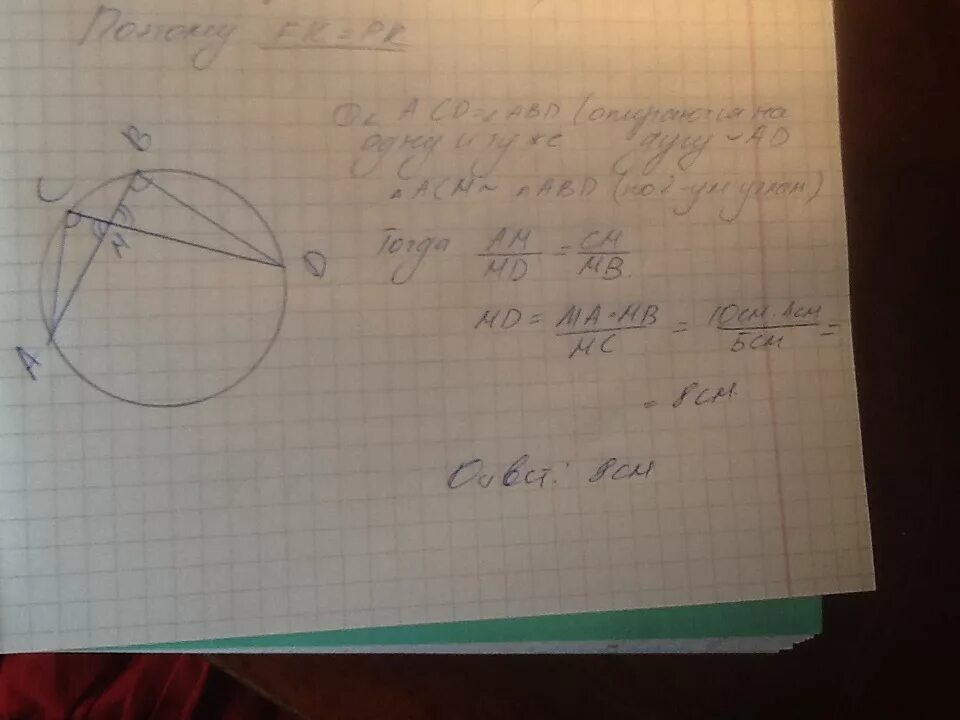 Поэтому EK = PK
∠ ACD = ∠ ABD (опираются на
одну и ту же дугу ◡AD
△ ACM ~ △ ABD (по 2-ум углам)
Тогда AM/MD = CM/MB
MD = MA·MB/MC = 10см·4см/5см =
= 8см
Ответ: 8см
B
C
M
D
A